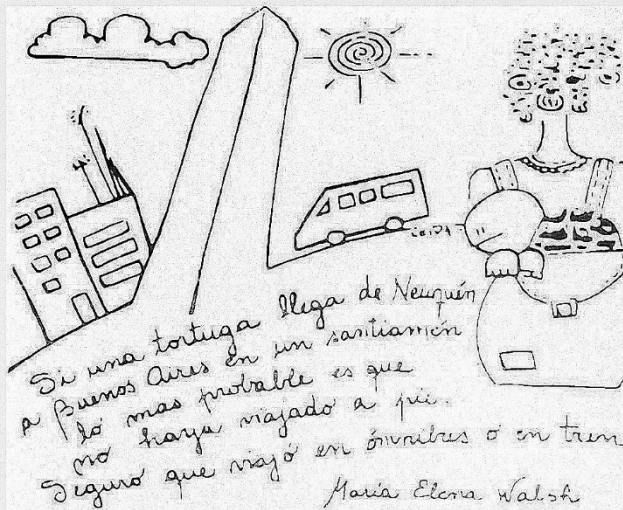 Si una tortuga llega de Neuquén
a Buenos Aires en un santiamén
lo mas probable es que
no haya viajado a pie.
Seguro que viajó en ómnibus o en tren
María Elena Walsh